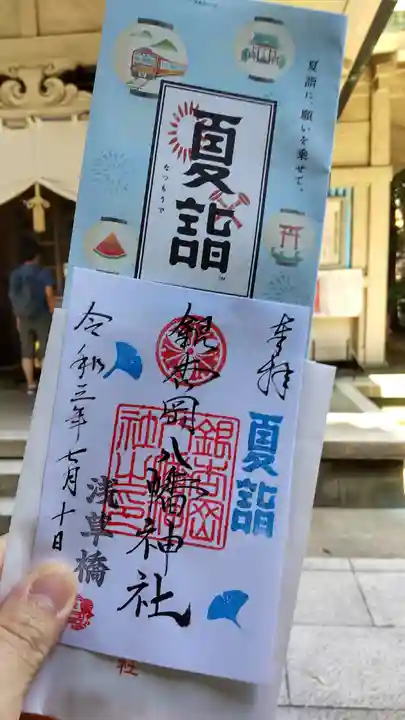 夏詣に、願いを乗せて。
夏詣
なつもうで
奉拝
夏詣
銀杏岡八幡神社
銀杏岡八幡神社之印
令和三年七月十日
浅草橋
社